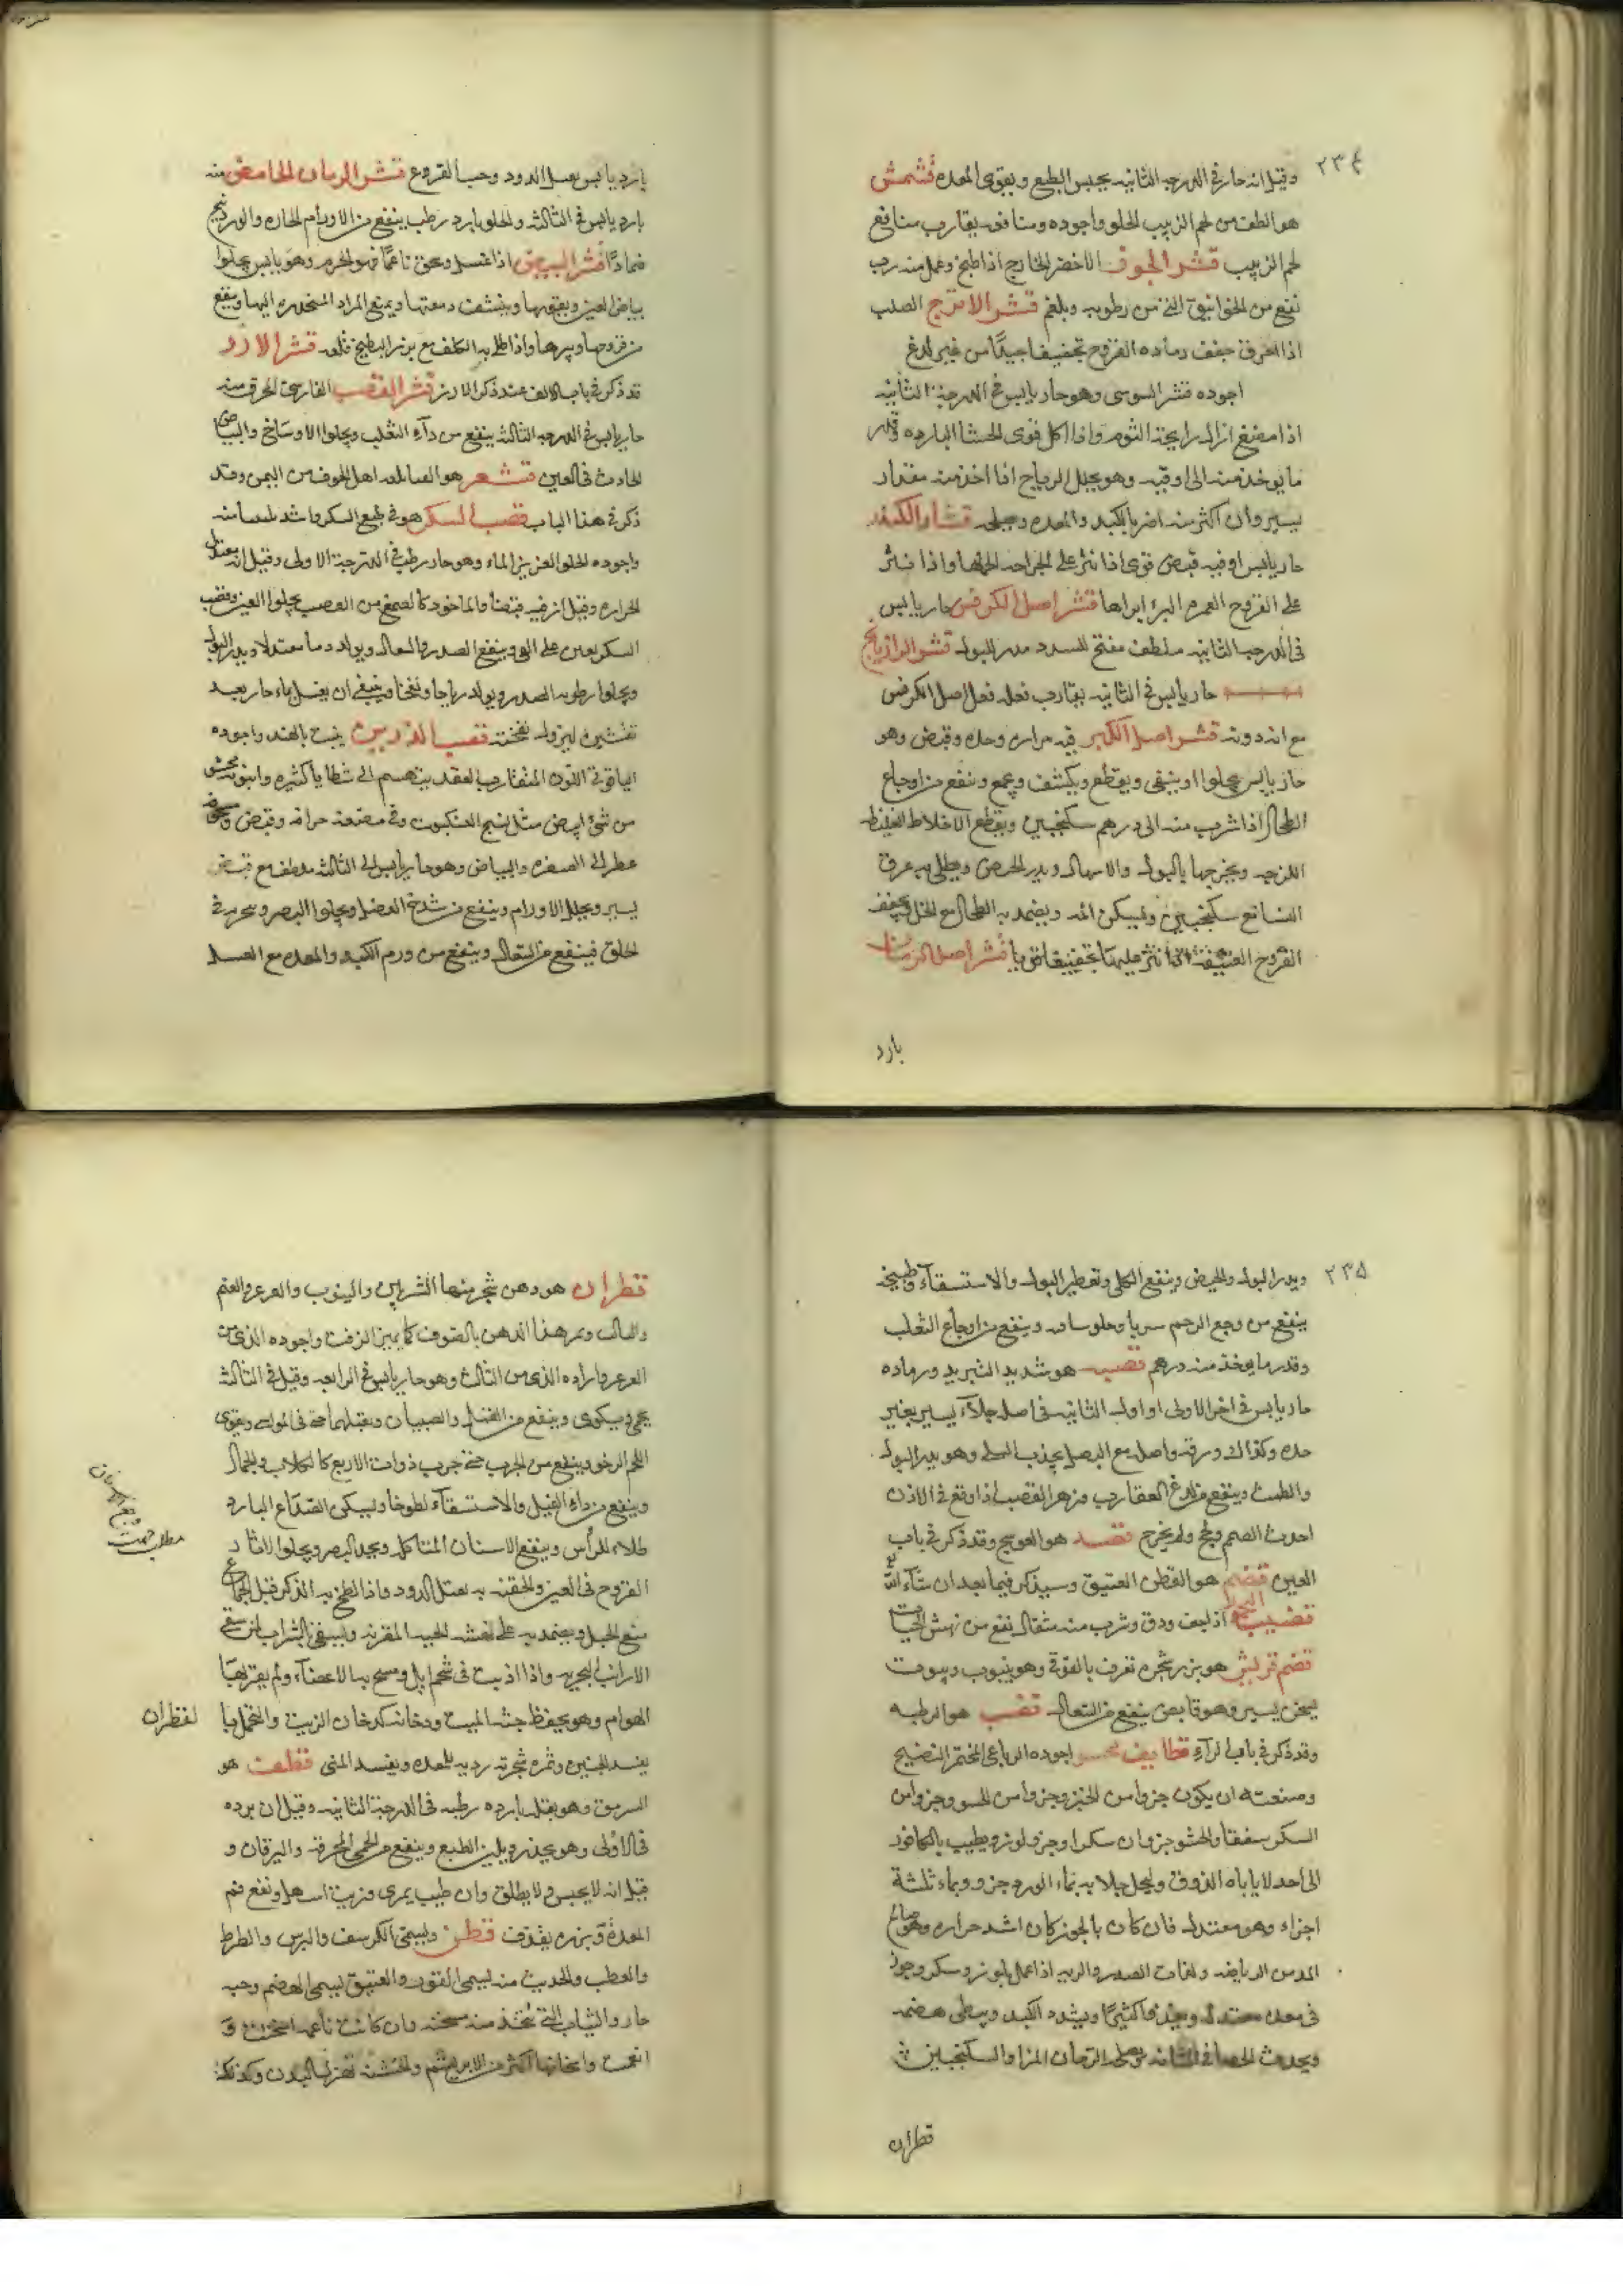 ٢٣٤
وقيل انه حار في الدرجه الثانيه يحبس الطبع ويقوى المعده قشمش
هو الطف من لحم الزبيب الحلو واجوده ومنافعه يقارب منافع
لحم الزبيب قشر الجوز الاخضر الخارج اذا طبخ وعمل منه رب
نفع من الخوانيق التى من رطوبه وبلغم قشر الاترج الصلب
اذا احرق جفف رماده القروح تجفيفا جيدًا من غير لدغ
اجوده قشر السوسى وهو حار يابس فى الدرجة الثانيه
اذا مضغ ازال رايحة الثوم واذا اكل قوى الحشا البارده وقدر
ما يوخذ منه الى اوقيه وهو يحلل الرياح اذا اخذ منه مقدار
يسير وان اكثر منه اضر بالكبد والمعده قشار الكندر
حار يابس وفيه قبض قوى اذا نثر على الجراحه الحمها واذا نثر
على القروح العسره البرء ابراها قشر اصل الكرفس حار يابس
فى الدرجه الثانيه ملطف مفتح للسدد مدر للبول قشر الرازيانج
حار يابس فى الثانيه يقارب فعله فعل اصل الكرفس
مع انه دونه قشر اصل الكبر فيه مراره وحده وقبض وهو
حار يابس يجلوا وينقى ويقطع ويكثف ويجمع وينفع من اوجاع
الطحال اذا شرب منه الى درهم سكنجبين ويقطع الاخلاط الغليظه
اللزجه ويخرجها بالبول والاسهال ويدر الحيض ويطلى به عرق
النسا مع سكنجبين ويسكن المه ويضمد به الطحال مع الخل ويجفف
القروح العتيقة اذا نثر عليها تجفيفا قويا قشر اصل الرمان
بارد
بارد يابس يقتل الدود وحب القروع قشر الرمان الحامض منه
بارد يابس فى الثالثه والحلو بارد رطب ينفع من الاورام الحاره والورشكين
ضمادًا قشر البيض اذا غسل وسحق ناعمًا فهو الخرم وهو يابس يجلوا
بياض العين ويقويها وينشف دمعتها ويمنع المواد المنحدره اليها وينفع
من قروحها ويبرها واذا طلى به الكلف مع بزر البطيخ قلعه قشر الارز
قد ذكر فى باب الالف عند ذكر الارز قشر القصب الفارسى المحرق منه
حار يابس فى الدرجه الثالثه ينفع من دآء الثعلب ويجلوا الاوساخ والبياض
الحادث فى العين قشعر هو القثا بلغه اهل الجوف من اليمن وقد
ذكر فى هذا الباب قصب السكر هو فى طبع السكر واشد تليينا منه
واجوده الحلو الغزير الماء وهو حار رطب فى الدرجة الاولى وقيل انه معتدل
الحراره وقيل ان فيه قبضا والماخوذ كالصمغ من القصب يجلوا العين وقصب
السكر يعين على القى وينفع الصدر والسعال ويولد دما معتدلا ويدر البول
ويجلوا رطوبه الصدر ويولد رياحا ونفخا وينبغى ان يغسل بماء حار بعد
تقشيره ليزول نفخه قصب الذريره ينبت بالهند واجوده
الياقوتى اللون المتقارب العقد يتهشم الى شظايا كثيره وانبوبه محشو
من شئ ابيض مثل نسج العنكبوت وفى مضغه حرافه وقبض ومسحوقه
عطر الى الصفره والبياض وهو حار يابس الى الثالثه ملطف مع قبض
يسير ويحلل الاورام وينفع من شدخ العضل ويجلوا البصر ويبخر به فى
الحلق فينفع من السعال وينفع من ورم الكبد والمعده مع العسل
٢٣٥
ويدر البول والحيض وينفع الكلى وتقطير البول والاستسقآء وطبيخه
ينفع من وجع الرحم شربا وجلوسا فيه وينفع من اوجاع الثعلب
وقدر ما يوخذ منه درهم قصب هو شديد التبريد ورماده
حار يابس فى اخر الاولى او اول الثانيه فى اصله جلآء يسير بغير
حده وكذلك ورقه واصله مع البصل يجذب السلى وهو يدر البول
والطمث وينفع من لدغ العقارب وزهر القصب اذا وقع فى الاذن
احدث الصمم ولحج ولم يخرج قصد هو العوسج وقد ذكر فى باب
العين قضم هو القطن العتيق وسيذكر فيما بعد ان شآء الله
قضيب اذا جفف ودق وشرب منه مثقال نفع من نهش الحيات
قضم قريش هو بزر شجره تعرف بالفوقه وهو ينبوب وينبوت
يسخن يسير وهو قابض ينفع من السعال قضب هو الرطبه
وقد ذكر فى باب الرآء قطايف محشو اجوده الرباعى المختمر النضيج
وصنعته ان يكون جزوا من الخبز وجزوا من الحشو وجزوا من
السكر سفقا والحشو جزوان سكرا وجزو لوز ويطيب بالكافور
الى احد لا ياباه الذوق وليحل جلابه بماء الورد جزو وبماء ثلثة
اجزاء وهو معتدل فان كان بالجوز كان اشد حراره وهو صالح
الصدر والريه اذا عمل بلوز وسكر وجوز
فى معده معتدله ويغذوا كثيرًا ويسدد الكبد ويبطى هضمه
ويحدث الحصا فى المثانه ويصلحه الرمان المز والسكنجبين
قطران
قطران هو دهن شجر منها الشربين والينبوب والعرعر والعتم
والتالب ويميز هذا الدهن بالصوف كما يميز الزفت واجوده الذى من
العرعر واراده الذى من التالب وهو حار يابس فى الرابعه وقيل فى الثالثه
يحمى ويكوى وينفع من القمل والصيبان ويقتلهما حتى فى المواشى ويقوى
اللحم الرخو وينفع من الجرب حتى جرب ذوات الاربع كالكلاب والجمال
وينفع من داء الفيل والاستسقآء لطوخا ويسكن الصداع البارد
طلاء للراس وينفع الاسنان المتاكله ويحد البصر ويجلوا الاثار
القروح فى العين والحقنه به تقتل الدود واذا لطخ به الذكر قبل الجماع
منع الحبل ويضمد به على نهشه الحيه المقرنه ويسقى بالشراب لمن سقى
الارانب البحريه واذا اذيب فى شحم ايل ومسح به الاعضآء لم يقربها
الهوام وهو يحفظ جثه الميت ودخانه كدخان الزيت والتحمل بها
يفسد الجنين وثمره شجرته رديه للمعده ويفسد المنى قطف هو
السرمق وهو بقله بارده رطبه فى الدرجة الثانيه وقيل ان برده
فى الاولى وهو يحدر ويلين الطبع وينفع من الحمى المحرقه واليرقان و
قيل انه لا يحبس ولا يطلق وان طيب بمرى وزيت اسهل ونفع فم
المعدة وبزره يقذف قطن ويسمى الكرسف والبرس والطرط
والعطب والحديث منه يسمى القور والعتيق يسمى القضم وحبه
حار والثياب التى تتخذ منه مسخنه وان كانت ناعمه اسخنت و
انعمت واسخانها اكثر من الابريشم والخشنه تهزل البدن وكذلك
مطلب جهت وجع الاسنان
لقطران